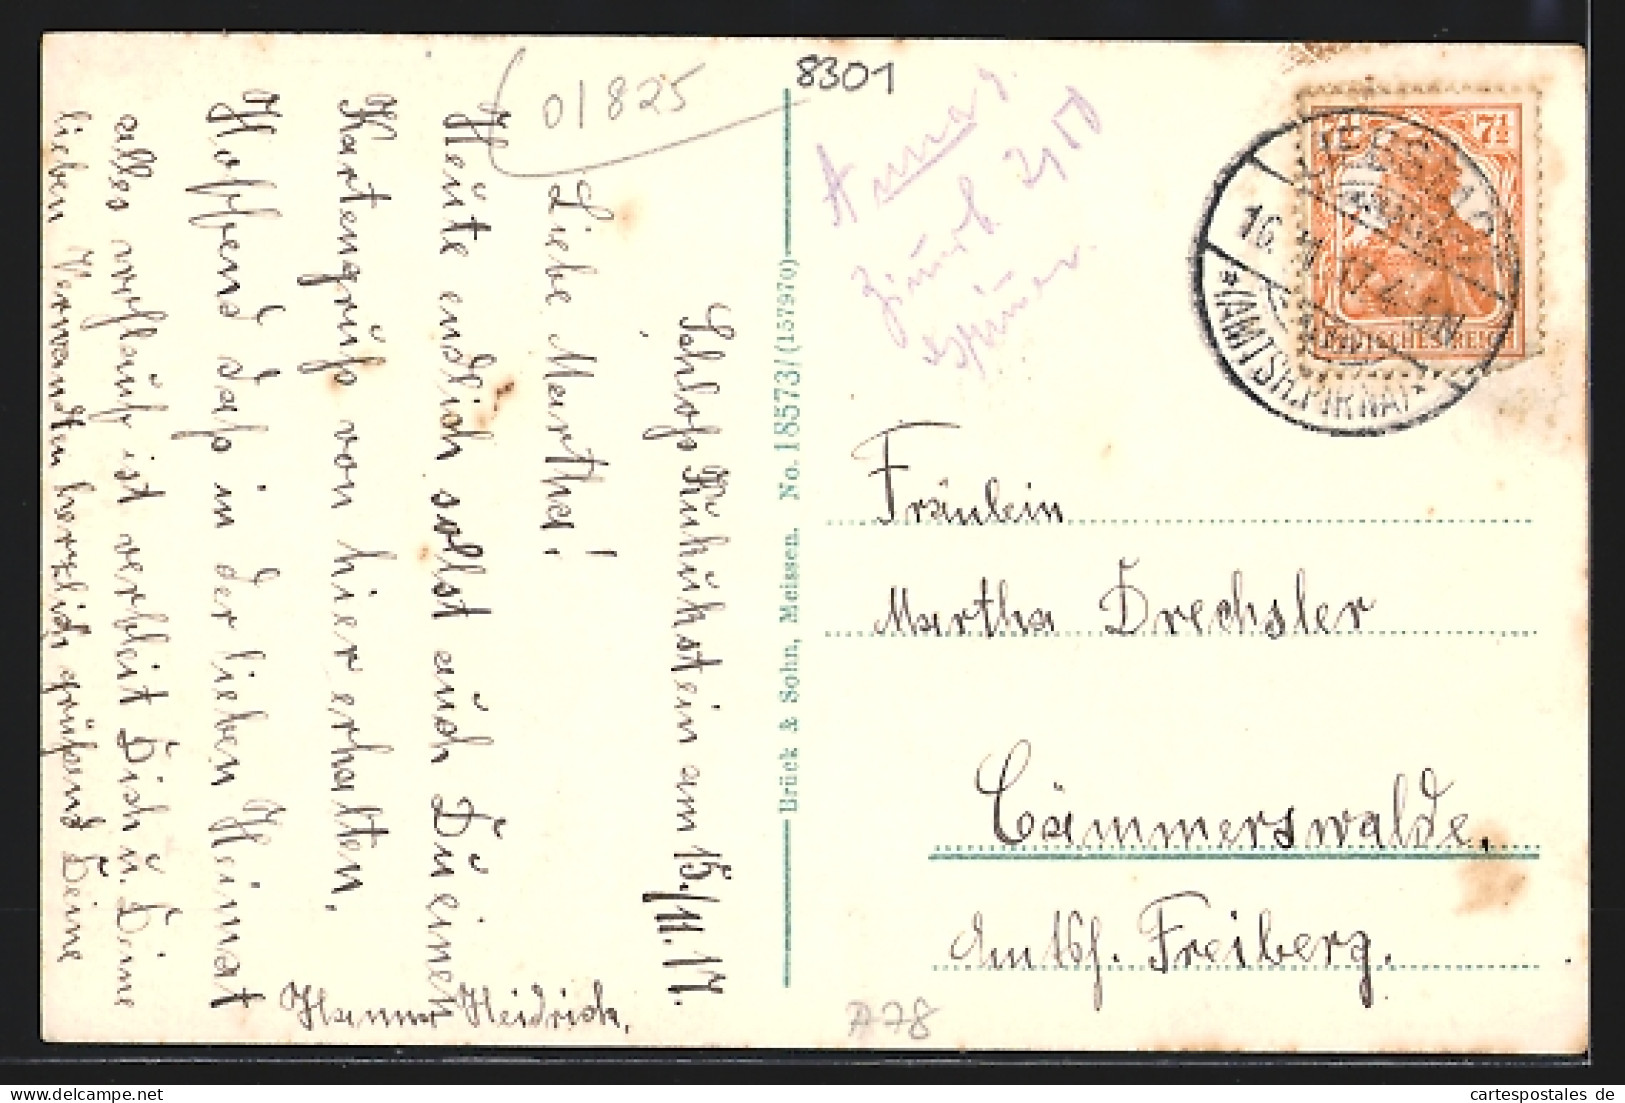 Schloß Kuckuckstein am 15./11.17.
Liebe Martha!
Heute endlich sollst auch Du einen
Kartengruß von hier erhalten.
Hoffend daß in der lieben Heimat
alles wohlauf ist verbleibt Dich u. Deine
lieben Verwandten herzlich grüßend Deine
Hanna Heidrich.
01825
8301
Brück & Sohn, Meissen. No. 18573/(157970)
7½ 7½
DEUTSCHES REICH
16. 11. 17. 4-5N
*(AMTSH. PIRNA)*
Fräulein
Martha Drechsler
Cämmerswalde.
Amtsh. Freiberg.
A78
cartespostales de